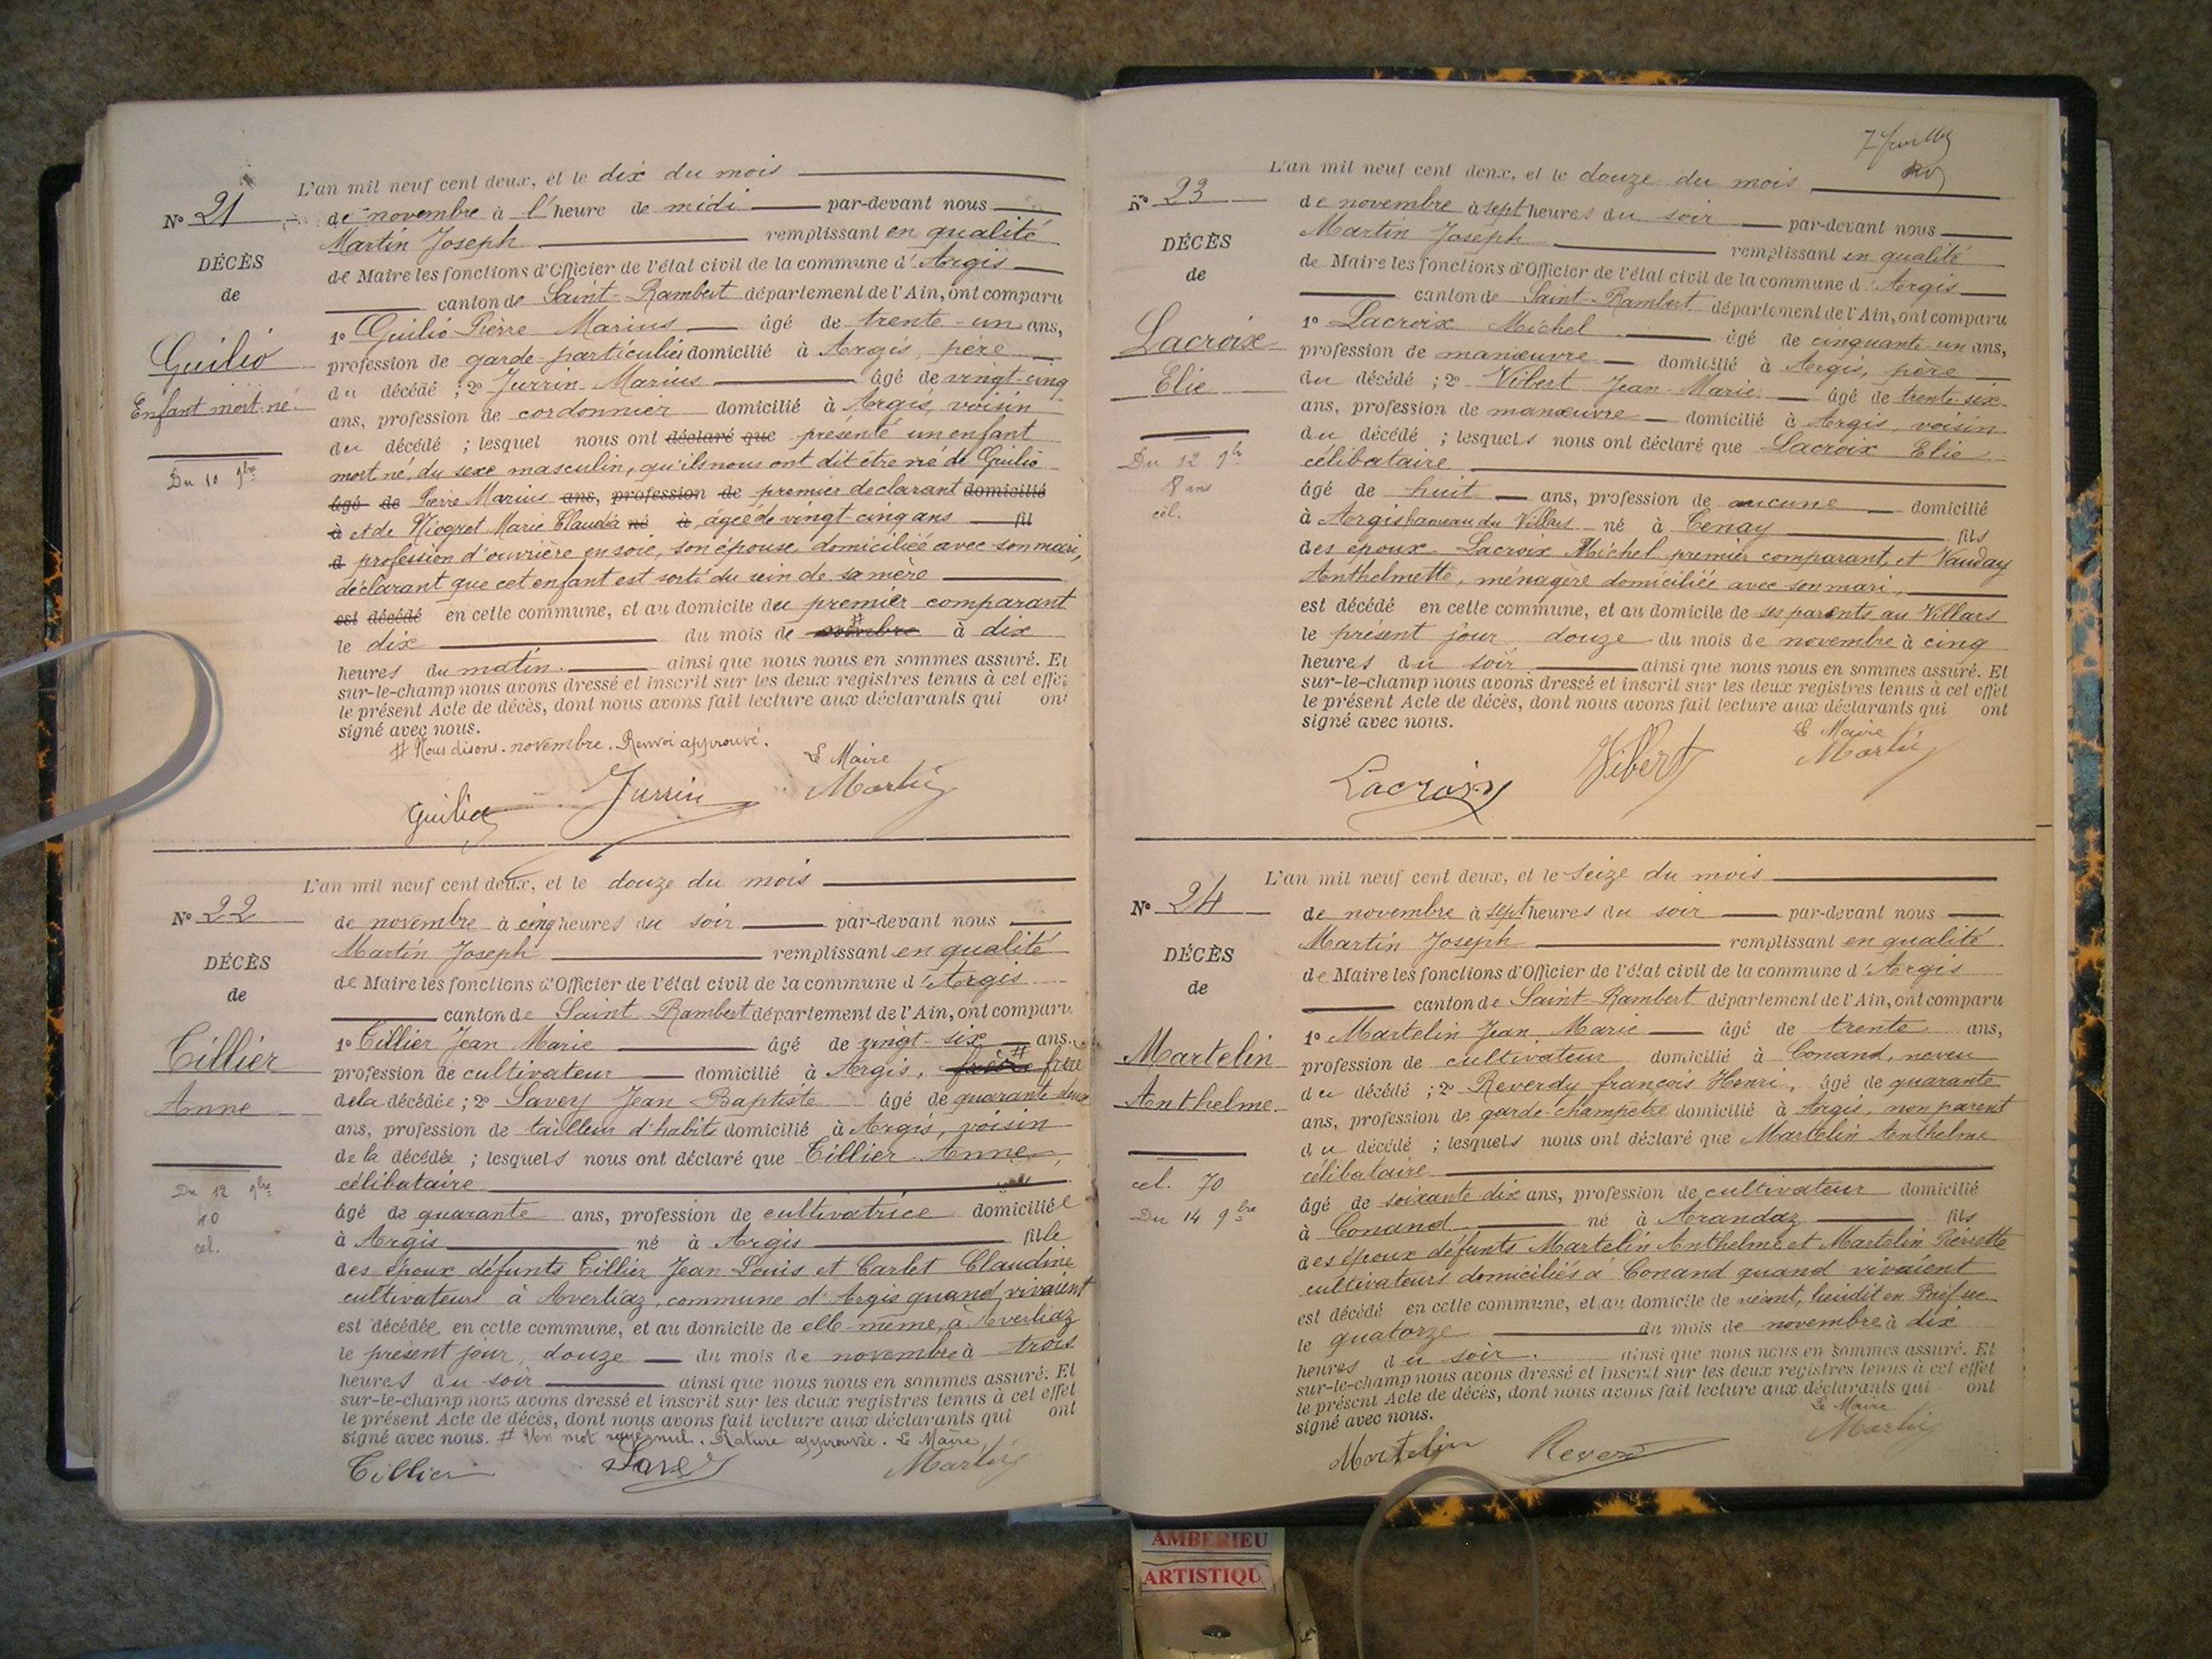 L'an mil neuf cent deux, et le dix du mois
N° 21 de novembre à l'heure de midi par-devant nous
Martin Joseph remplissant en qualité
DÉCÈS
de
de Maire les fonctions d'Officier de l'état civil de la commune d'Argis
canton de Saint-Rambert département de l'Ain, ont comparu
1° Guilio Pierre Marius âgé de trente-un ans,
Guilio
Enfant mort-né
profession de garde-particulier domicilié à Argis, père
du décédé ; 2° Jurrin Marius âgé de vingt-cinq
ans, profession de cordonnier domicilié à Argis, voisin
du décédé ; lesquel nous ont déclaré que présenté un enfant
Du 10 9bre
mort né du sexe masculin, qu'ils nous ont dit être né de Guilio
âgé de Pierre Marius ans, profession de premier déclarant domicilié
à et de Niogret Marie Clauda né à, âgée de vingt-cinq ans fil
d profession d'ouvrière en soie, son épouse domiciliée avec son mari,
déclarant que cet enfant est sorti du sein de sa mère
est décédé en cette commune, et au domicile du premier comparant
le dix du mois de # à dix
heures du matin. ainsi que nous nous en sommes assuré. Et
sur-le-champ nous avons dressé et inscrit sur les deux registres tenus à cet effet
le présent Acte de décès, dont nous avons fait lecture aux déclarants qui ont
signé avec nous.
# Nous disons novembre. Renvoi approuvé.
Le Maire
Guilio Jurrin Martin
L'an mil neuf cent deux, et le douze du mois
N° 22 de novembre à cinq heures du soir par-devant nous
Martin Joseph remplissant en qualité
DÉCÈS
de
de Maire les fonctions d'Officier de l'état civil de la commune d'Argis
canton de Saint Rambert département de l'Ain, ont comparu
1° Tillier Jean Marie âgé de vingt-six ans,
Tillier
Anne
profession de cultivateur domicilié à Argis, # frère
de la décédée ; 2° Savey Jean Baptiste âgé de quarante-deux
ans, profession de tailleur d'habits domicilié à Argis, voisin
de la décédée ; lesquels nous ont déclaré que Tillier Anne,
célibataire
Du 12 9bre
40
cel.
âgé de quarante ans, profession de cultivatrice domiciliée
à Argis né à Argis fille
des époux défunts Tillier Jean Louis et Carlet Claudine
cultivateurs à Averliaz, commune d'Argis quand vivaient
est décédée en cette commune, et au domicile de elle-même, à Averliaz
le présent jour, douze du mois de novembre à trois
heures du soir ainsi que nous nous en sommes assuré. Et
sur-le-champ nous avons dressé et inscrit sur les deux registres tenus à cet effet
le présent Acte de décès, dont nous avons fait lecture aux déclarants qui ont
signé avec nous. # Un mot rayé nul. Rature approuvée. Le Maire,
Tillier Savey Martin
7 feuillet
L'an mil neuf cent deux, et le douze du mois
N° 23 de novembre à sept heures du soir par-devant nous
Martin Joseph remplissant en qualité
DÉCÈS
de
de Maire les fonctions d'Officier de l'état civil de la commune d'Argis
canton de Saint-Rambert département de l'Ain, ont comparu
1° Lacroix Michel âgé de cinquante un ans,
Lacroix
Elie
profession de manœuvre domicilié à Argis, père
du décédé ; 2° Vibert Jean-Marie âgé de trente-six
ans, profession de manœuvre domicilié à Argis, voisin
du décédé ; lesquels nous ont déclaré que Lacroix Elie
célibataire
Du 12 9bre
8 ans
cél.
âgé de huit ans, profession de aucune domicilié
à Argis hameau du Villars né à Tenay fils
des époux Lacroix Michel premier comparant, et Vauday
Anthelmette, ménagère domiciliée avec son mari,
est décédé en cette commune, et au domicile de ses parents au Villars
le présent jour douze du mois de novembre à cinq
heures du soir ainsi que nous nous en sommes assuré. Et
sur-le-champ nous avons dressé et inscrit sur les deux registres tenus à cet effet
le présent Acte de décès, dont nous avons fait lecture aux déclarants qui ont
signé avec nous.
Le Maire
Lacroix Vibert Martin
L'an mil neuf cent deux, et le seize du mois
N° 24 de novembre à sept heures du soir par-devant nous
Martin Joseph remplissant en qualité
DÉCÈS
de
de Maire les fonctions d'Officier de l'état civil de la commune d'Argis
canton de Saint-Rambert département de l'Ain, ont comparu
1° Martelin Jean Marie âgé de trente ans,
Martelin
Anthelme
profession de cultivateur domicilié à Conand, neveu
du décédé ; 2° Reverdy françois Henri, âgé de quarante
ans, profession de garde-champêtre domicilié à Argis, non parent
du décédé ; lesquels nous ont déclaré que Martelin Anthelme
célibataire
cel. 70
Du 14 9bre
âgé de soixante dix ans, profession de cultivateur domicilié
à Conand né à Arandaz fils
des époux défunts Martelin Anthelme et Martelin Pierrette
cultivateurs domiciliés à Conand quand vivaient
est décédé en cette commune, et au domicile de néant, lieudit en Brief sec
le quatorze du mois de novembre à dix
heures du soir. ainsi que nous nous en sommes assuré. Et
sur-le-champ nous avons dressé et inscrit sur les deux registres tenus à cet effet
le présent Acte de décès, dont nous avons fait lecture aux déclarants qui ont
signé avec nous.
Le Maire
Martelin Reverd Martin
AMBERIEU
ARTISTIQU